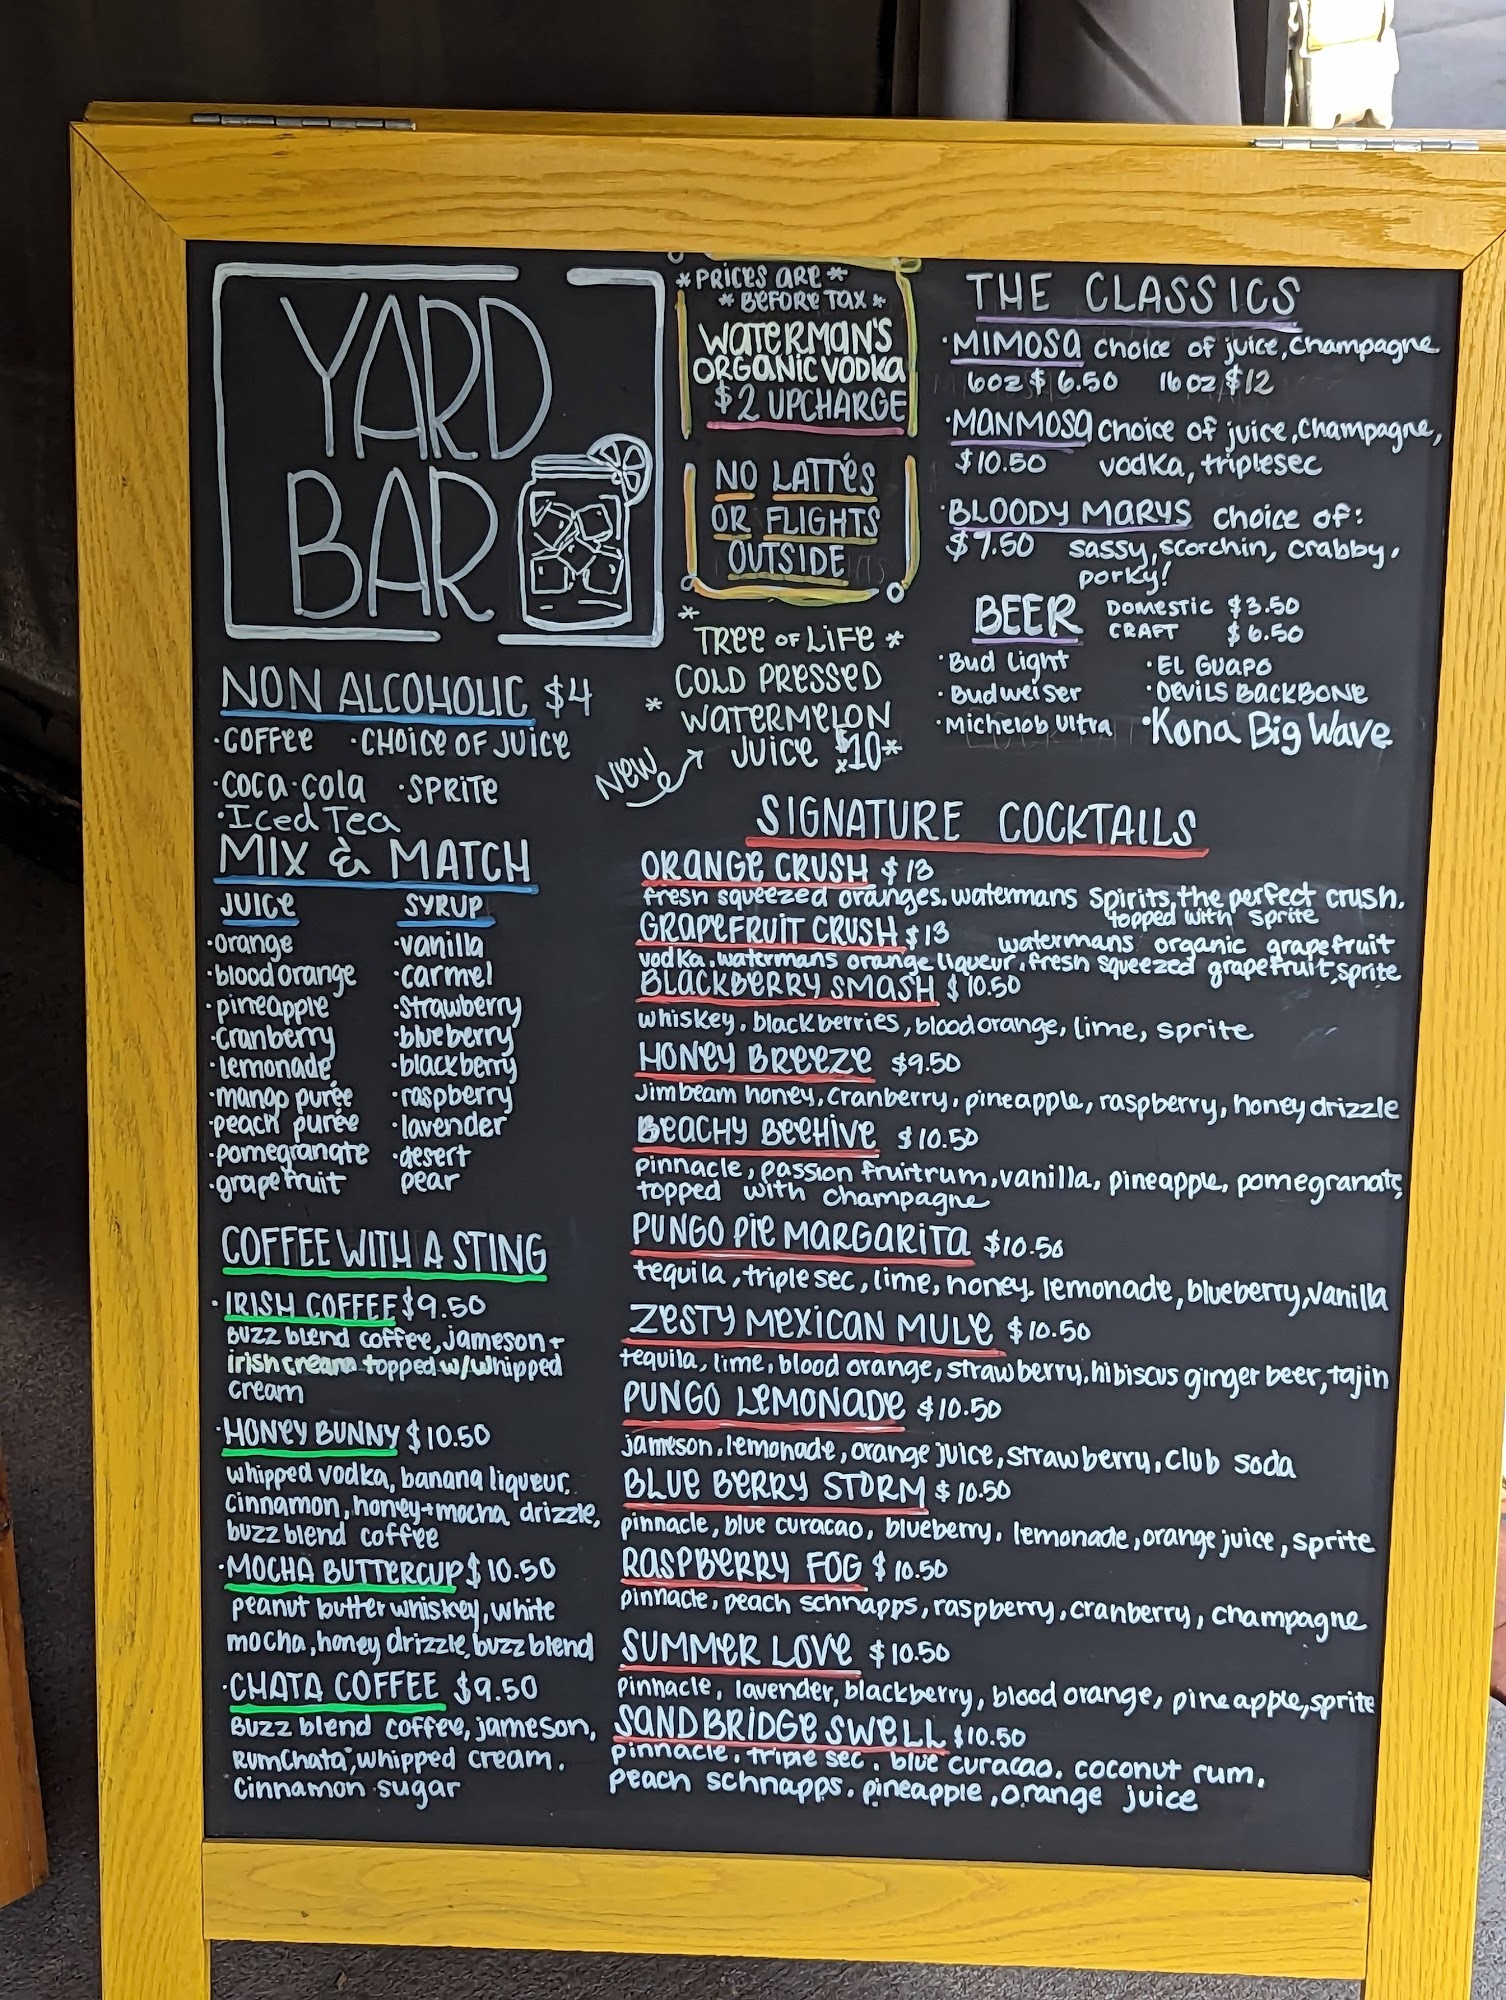 YARD
BAR
*PRICES ARE*
*BEFORE TAX*
WATERMAN'S
ORGANIC VODKA
$2 UPCHARGE
NO LATTÉS
OR FLIGHTS
OUTSIDE
*
TREE OF LIFE *
COLD PRESSED
* WATERMELON
JUICE $10*
NEW
THE CLASSICS
·MIMOSA choice of juice, champagne
6oz $6.50 16oz $12
·MANMOSA choice of juice, champagne,
$10.50 vodka, triplesec
·BLOODY MARYS choice of:
$7.50 sassy, scorchin, crabby,
porky!
BEER DOMESTIC $3.50
CRAFT $6.50
·Bud Light ·EL GUAPO
·Budweiser ·DEVILS BACKBONE
·Michelob Ultra ·Kona Big Wave
NON ALCOHOLIC $4
·COFFEE ·CHOICE OF JUICE
·COCA·COLA ·SPRITE
·Iced Tea
MIX & MATCH
JUICE SYRUP
·orange ·vanilla
·blood orange ·carmel
·pineapple ·strawberry
·cranberry ·blueberry
·lemonade ·blackberry
·mango purée ·raspberry
·peach purée ·lavender
·pomegranate ·desert
·grapefruit pear
COFFEE WITH A STING
·IRISH COFFEE $9.50
Buzz blend coffee, jameson +
irish cream topped w/whipped
cream
·HONEY BUNNY $10.50
whipped vodka, banana liqueur,
cinnamon, honey+mocha drizzle,
buzz blend coffee
·MOCHA BUTTERCUP $10.50
peanut butter whiskey, white
mocha, honey drizzle, buzz blend
·CHATA COFFEE $9.50
Buzz blend coffee, jameson,
RumChata, whipped cream,
cinnamon sugar
SIGNATURE COCKTAILS
ORANGE CRUSH $13
fresh squeezed oranges, watermans spirits, the perfect crush,
topped with sprite
GRAPEFRUIT CRUSH $13 watermans organic grapefruit
vodka, watermans orange liqueur, fresh squeezed grapefruit, sprite
BLACKBERRY SMASH $10.50
whiskey, blackberries, blood orange, lime, sprite
HONEY BREEZE $9.50
Jimbeam honey, cranberry, pineapple, raspberry, honey drizzle
BEACHY BEEHIVE $10.50
pinnacle, passion fruit rum, vanilla, pineapple, pomegranate
topped with champagne
PUNGO PIE MARGARITA $10.50
tequila, triple sec, lime, honey, lemonade, blueberry, vanilla
ZESTY MEXICAN MULE $10.50
tequila, lime, blood orange, strawberry, hibiscus ginger beer, tajin
PUNGO LEMONADE $10.50
jameson, lemonade, orange juice, strawberry, club soda
BLUE BERRY STORM $10.50
pinnacle, blue curacao, blueberry, lemonade, orange juice, sprite
RASPBERRY FOG $10.50
pinnacle, peach schnapps, raspberry, cranberry, champagne
SUMMER LOVE $10.50
pinnacle, lavender, blackberry, blood orange, pineapple, sprite
SANDBRIDGE SWELL $10.50
pinnacle, triple sec, blue curacao, coconut rum,
peach schnapps, pineapple, orange juice